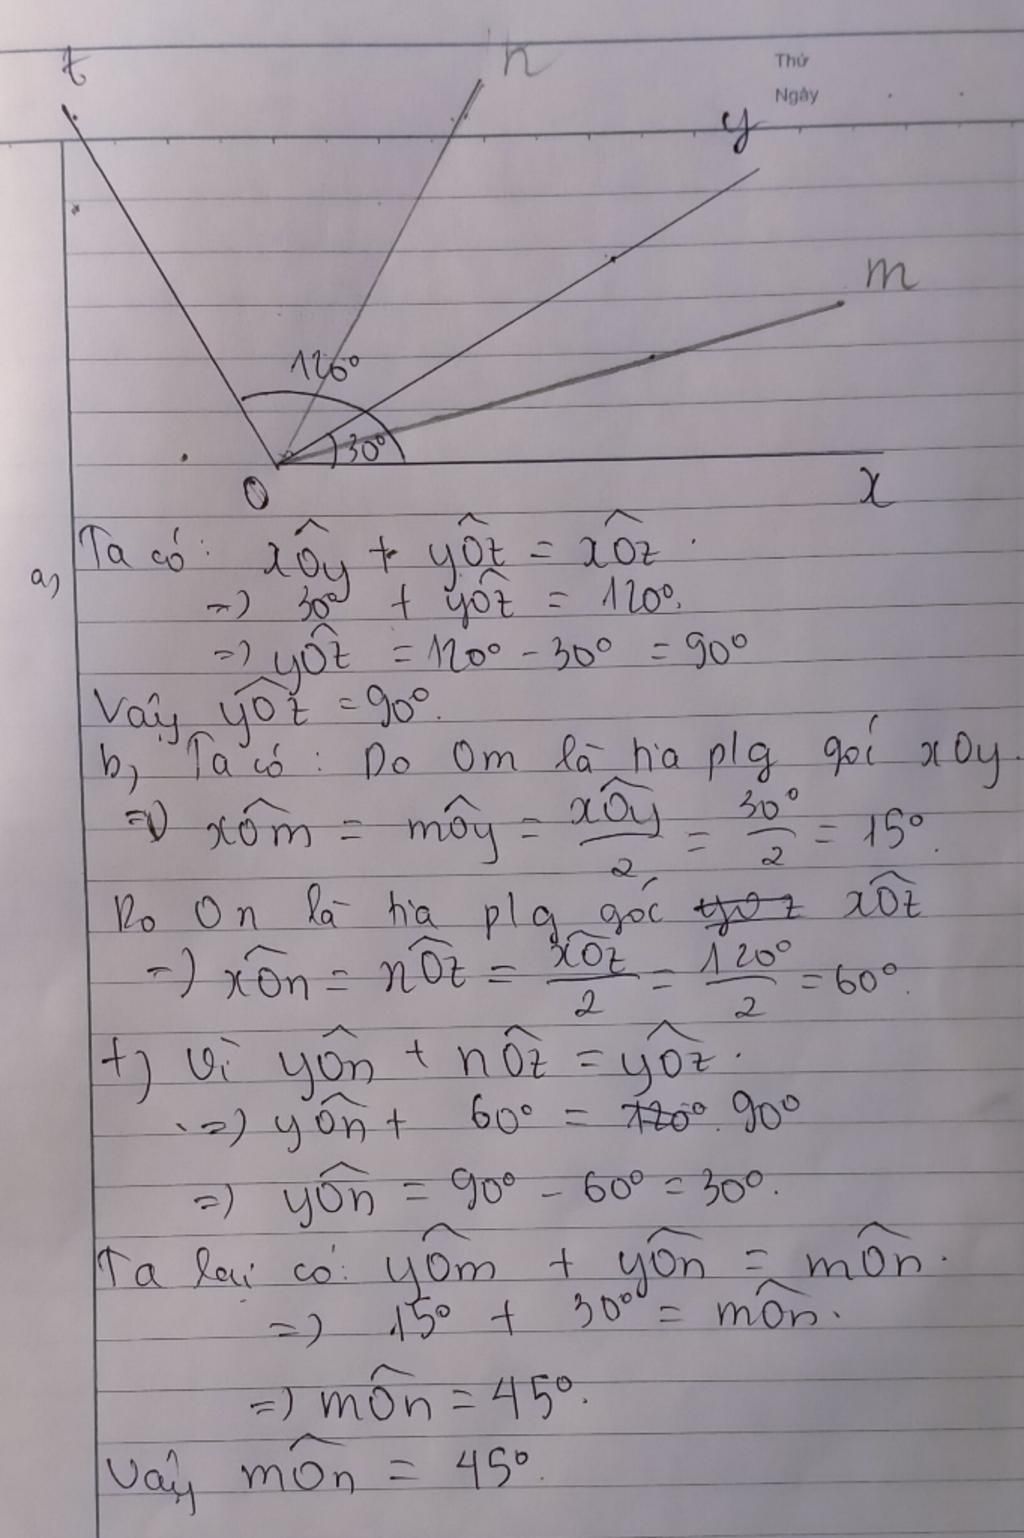 z
n
Thứ
Ngày
y
m
120°
30°
O
x
a, Ta có: xÔy + yÔz = xÔz.
=> 30° + yÔz = 120°.
=> yÔz = 120° - 30° = 90°
Vậy yÔz = 90°.
b, Ta có: Do Om là tia plg góc xOy.
=> xÔm = mÔy = xÔy/2 = 30°/2 = 15°.
Do On là tia plg góc yOz xÔz
=> xÔn = nÔz = xÔz/2 = 120°/2 = 60°.
+) Vì yÔn + nÔz = yÔz.
=> yÔn + 60° = 120° 90°
=> yÔn = 90° - 60° = 30°.
Ta lại có: yÔm + yÔn = mÔn.
=> 15° + 30° = mÔn.
=> mÔn = 45°.
Vậy mÔn = 45°.